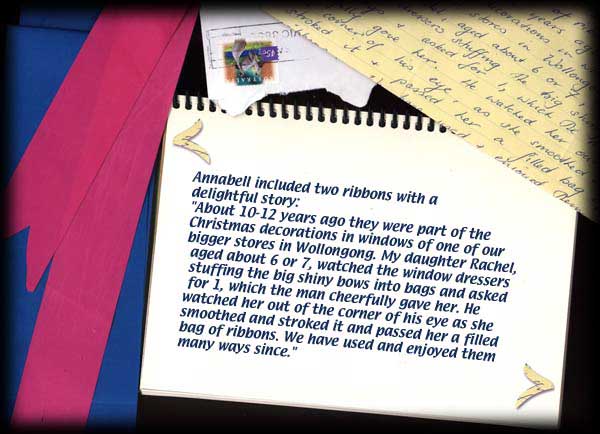 45c
decorations in
stores in
aged about 6 or
& asked
stuffing the big
for 1, which the
her. He watched her
of his eye, as she smoothed
it &
passed her a filled bag
& enjoyed them
Annabell included two ribbons with a
delightful story:
"About 10-12 years ago they were part of the
Christmas decorations in windows of one of our
bigger stores in Wollongong. My daughter Rachel,
aged about 6 or 7, watched the window dressers
stuffing the big shiny bows into bags and asked
for 1, which the man cheerfully gave her. He
watched her out of the corner of his eye as she
smoothed and stroked it and passed her a filled
bag of ribbons. We have used and enjoyed them
many ways since."